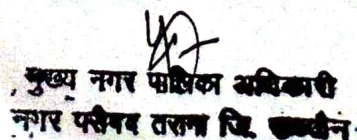 मुख्य नगर पालिका अधिकारी
नगर परिषद तराना जि. उज्जैन